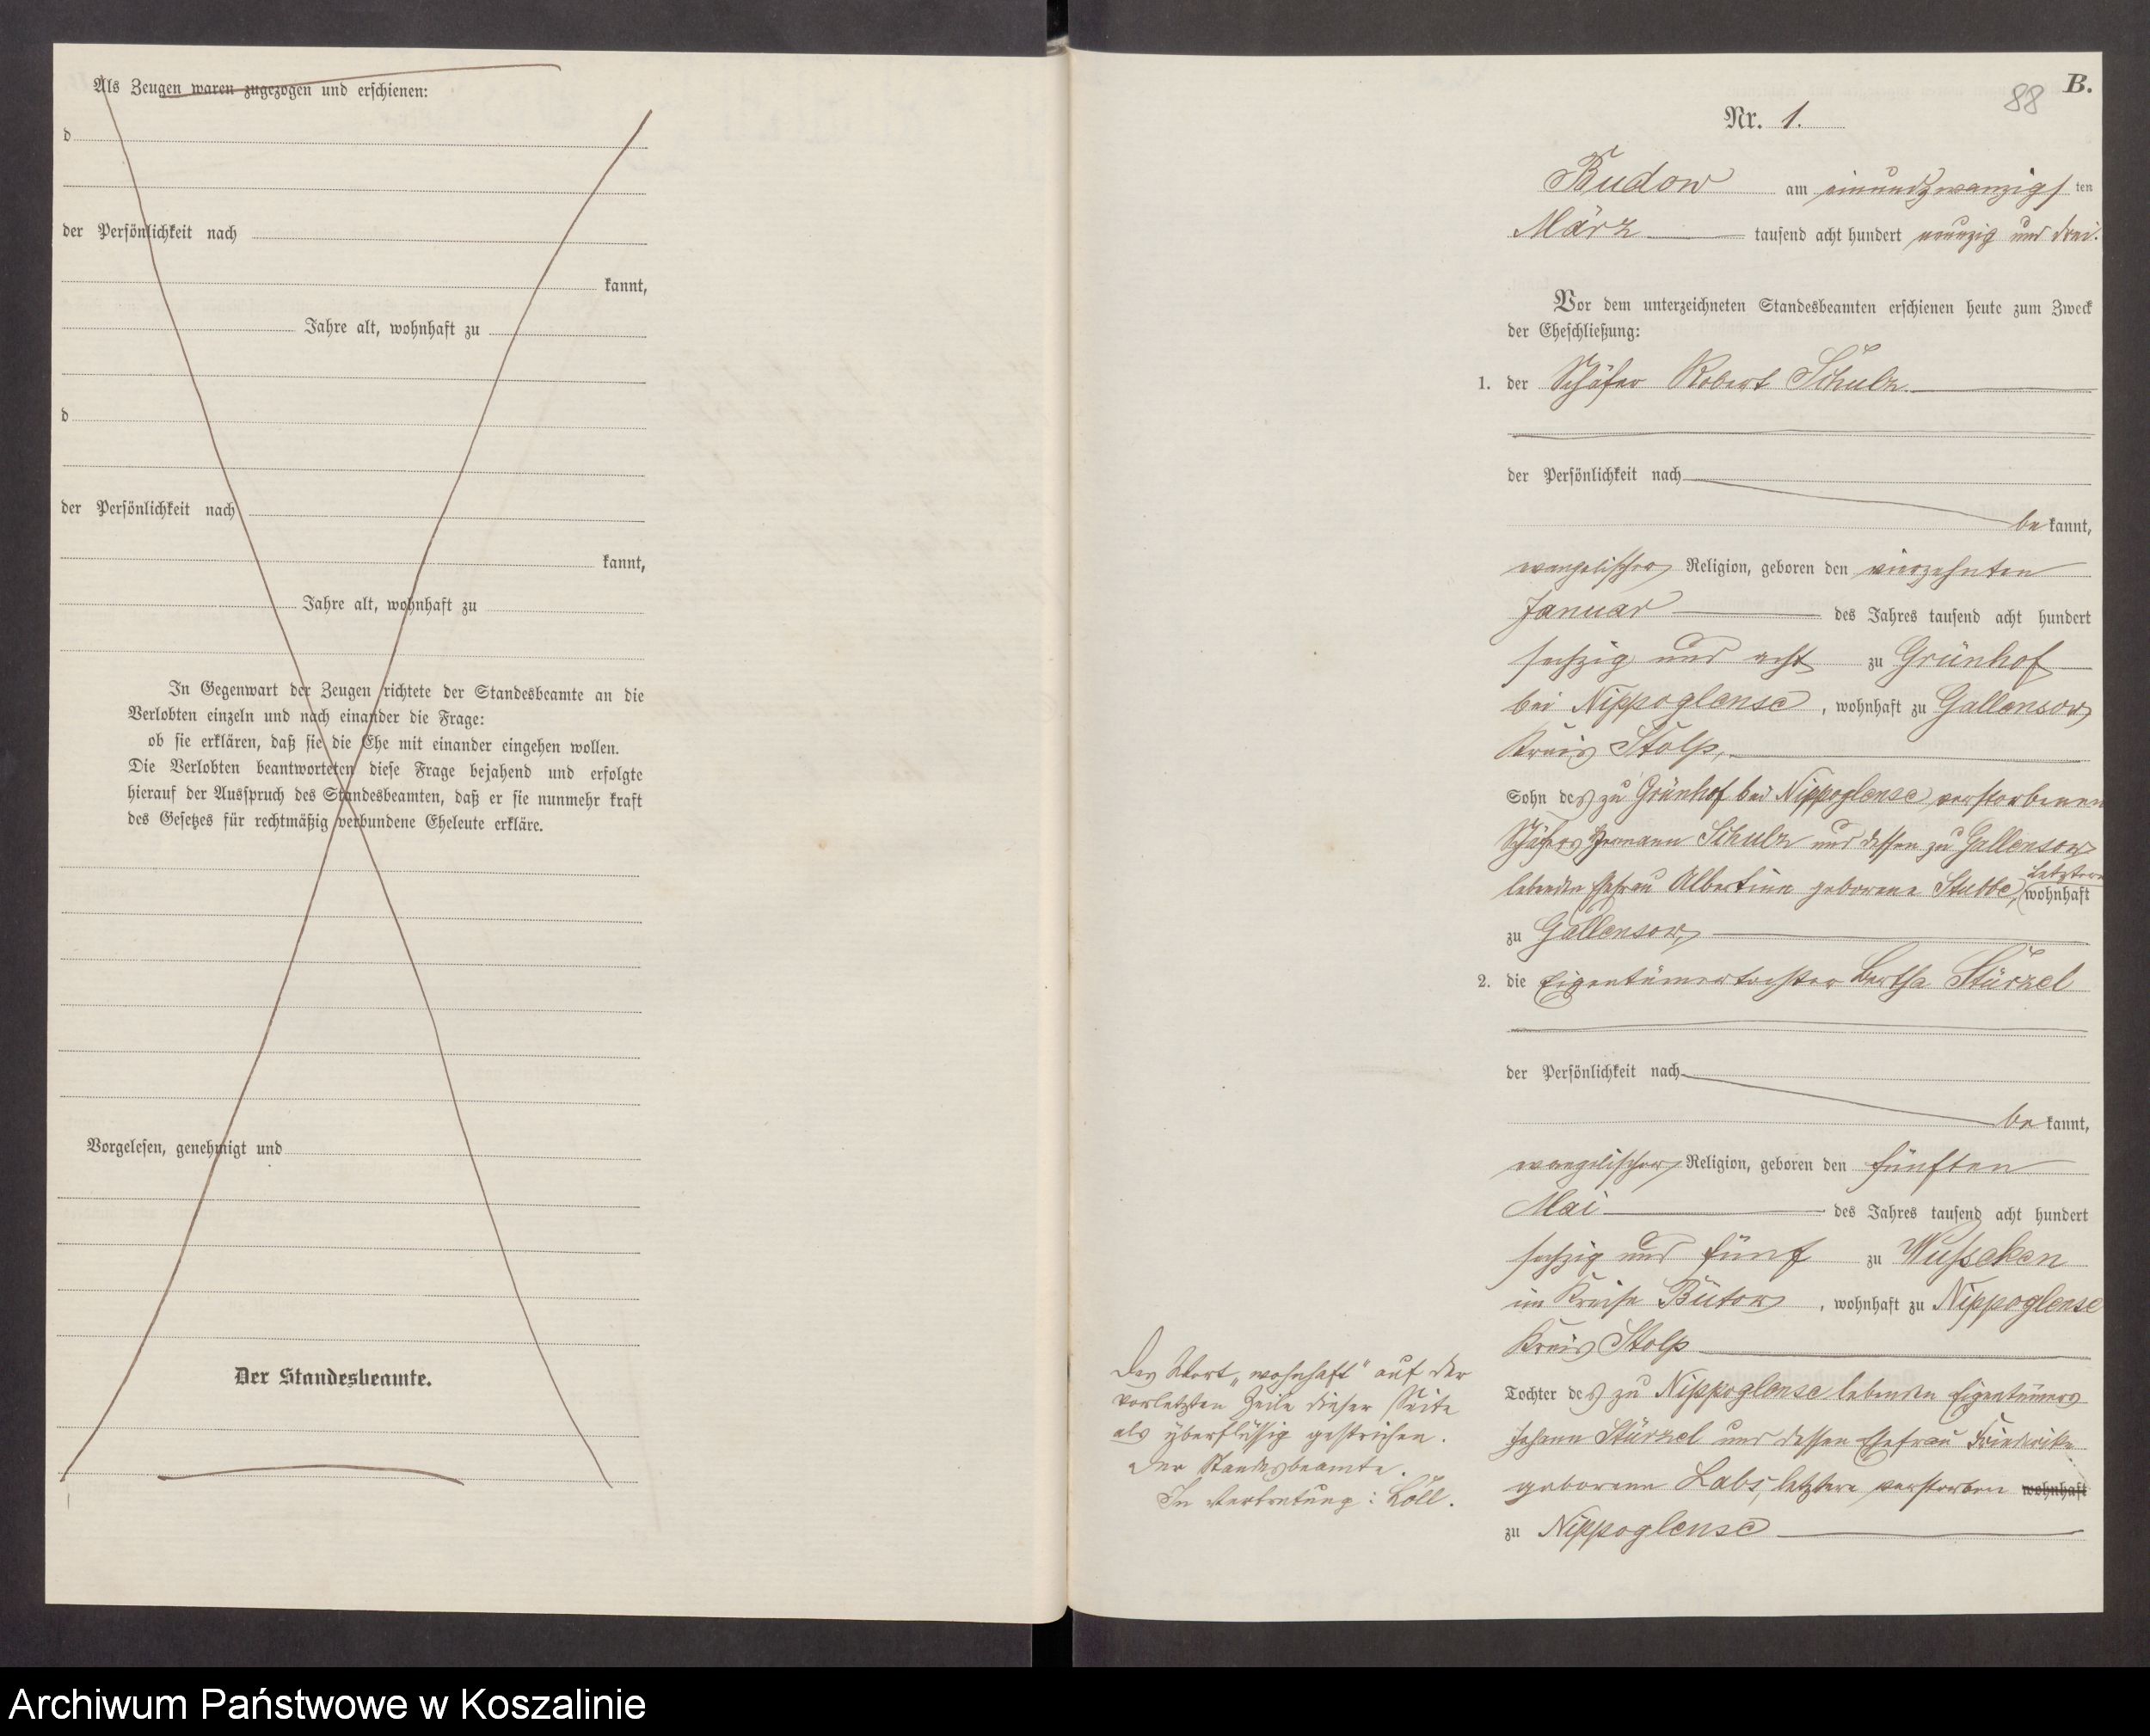 Als Zeugen waren zugezogen und erschienen:
d
der Persönlichkeit nach
kannt,
Jahre alt, wohnhaft zu
d
der Persönlichkeit nach
kannt,
Jahre alt, wohnhaft zu
In Gegenwart der Zeugen richtete der Standesbeamte an die
Verlobten einzeln und nach einander die Frage:
ob sie erklären, daß sie die Ehe mit einander eingehen wollen.
Die Verlobten beantworteten diese Frage bejahend und erfolgte
hierauf der Ausspruch des Standesbeamten, daß er sie nunmehr kraft
des Gesetzes für rechtmäßig verbundene Eheleute erkläre.
Vorgelesen, genehmigt und
Der Standesbeamte.
B.
88
Nr. 1.
Budow am einundzwanzigsten
März tausend acht hundert neunzig und drei.
Vor dem unterzeichneten Standesbeamten erschienen heute zum Zweck
der Eheschließung:
1. der Schäfer Robert Schulz
der Persönlichkeit nach
bekannt,
evangelischer Religion, geboren den vierzehnten
Januar des Jahres tausend acht hundert
sechzig und acht zu Grünhof
bei Nippoglense, wohnhaft zu Gallensow,
Kreis Stolp,
Sohn des zu Grünhof bei Nippoglense verstorbenen
Schäfers Hermann Schulz und dessen zu Gallensow
lebenden Ehefrau Albertine geborene Stubbe, letztere wohnhaft
zu Gallensow,
2. die Eigentümertochter Bertha Stürzel
der Persönlichkeit nach
bekannt,
evangelischer Religion, geboren den fünften
Mai des Jahres tausend acht hundert
sechzig und fünf zu Wusseken
im Kreise Bütow, wohnhaft zu Nippoglense
Kreis Stolp
Tochter des zu Nippoglense lebenden Eigentümers
Johann Stürzel und dessen Ehefrau Friederike
geborene Labs, letztere verstorben wohnhaft
zu Nippoglense
Das Wort "wohnhaft" auf der
vorletzten Zeile dieser Seite
als überflüssig gestrichen.
Der Standesbeamte.
In Vertretung: Löll.
Archiwum Państwowe w Koszalinie